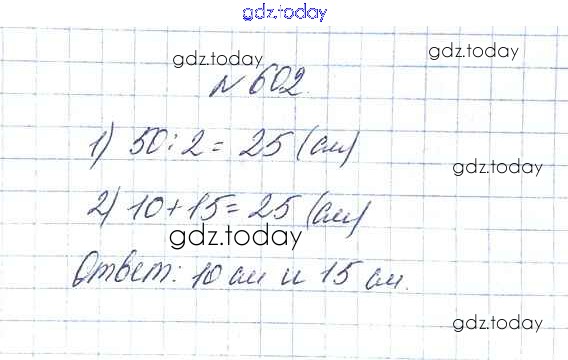 gdz.today
gdz.today
gdz.today
№ 602.
1) 50:2 = 25 (см)
gdz.today
2) 10+15 = 25 (см)
gdz.today
Ответ: 10 см и 15 см.
gdz.today